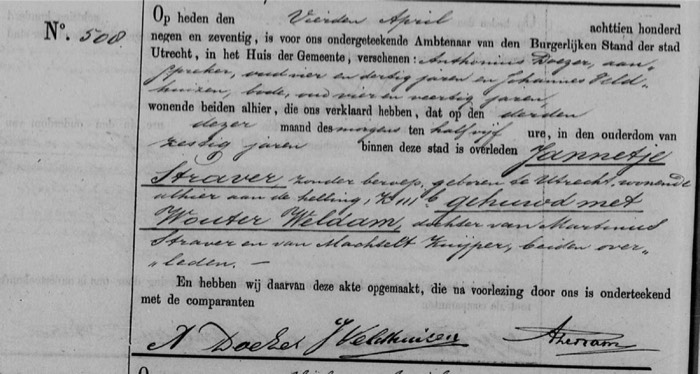 Nº. 508
Op heden den Vierden April achttien honderd
negen en zeventig, is voor ons ondergeteekende Ambtenaar van den Burgerlijken Stand der stad
Utrecht, in het Huis der Gemeente, verschenen: Anthonius Doezer, aan-
spreker, oud vier en dertig jaren en Johannes Veld-
huizen, bode, oud vier en veertig jaren,
wonende beiden alhier, die ons verklaard hebben, dat op den derden
dezer maand des morgens ten half vijf ure, in den ouderdom van
zestig jaren binnen deze stad is overleden Jannetje
Straver, zonder beroep, geboren te Utrecht, wonende
alhier aan de helling, gehuwd met
Wouter Weldam, dochter van Martinus
Straver en van Machtelt Kuijper, beiden over-
leden. —
En hebben wij daarvan deze akte opgemaakt, die na voorlezing door ons is onderteekend
met de comparanten
A Doezer J Veldhuizen